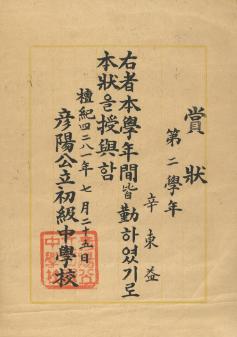 賞狀
第二學年
辛東益
右者本學年間皆勤하였기로
本狀을授與함
檀紀四二八一年七月二十五日
彦陽公立初級中學校